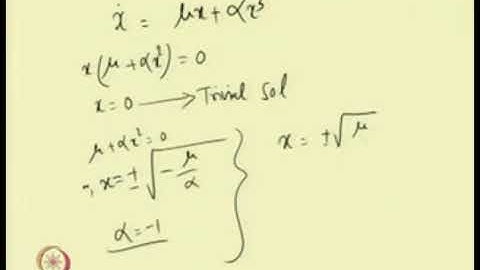 ẋ = μx + αx³
x(μ + αx²) = 0
x = 0 ⟶ Trivial Sol
μ + αx² = 0
∴, x = ± √(-μ/α)
α = -1
x = ± √μ